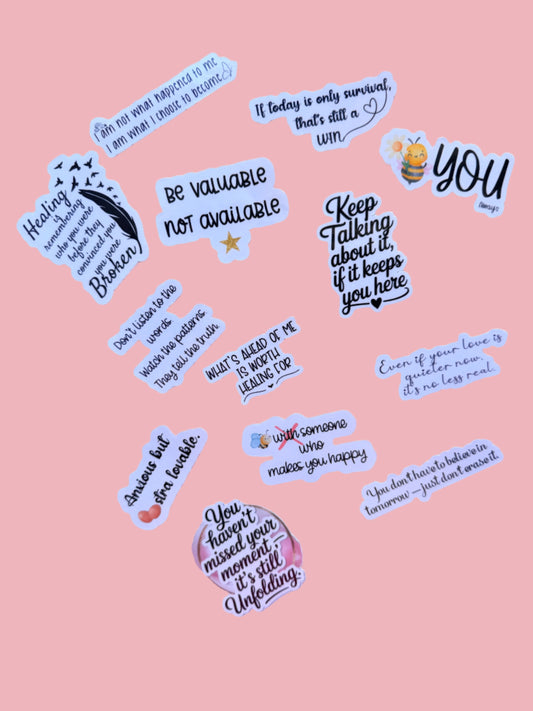 I am not what happened to me
I am what I choose to become
If today is only survival,
that's still a
win
YOU
Healing
is
remembering
who you were
before they
convinced you
you were
Broken
Be valuable
not available
Keep
Talking
about it,
if it keeps
you here
Don't listen to the
words
Watch the patterns
They tell the truth
WHAT'S AHEAD OF ME
IS WORTH
HEALING FOR
Even if your love is
quieter now,
it's no less real.
Anxious but
stra lovable.
with someone
who
makes you happy
You don't have to believe in
tomorrow—just don't erase it.
You
haven't
missed your
moment,
it's still
Unfolding.